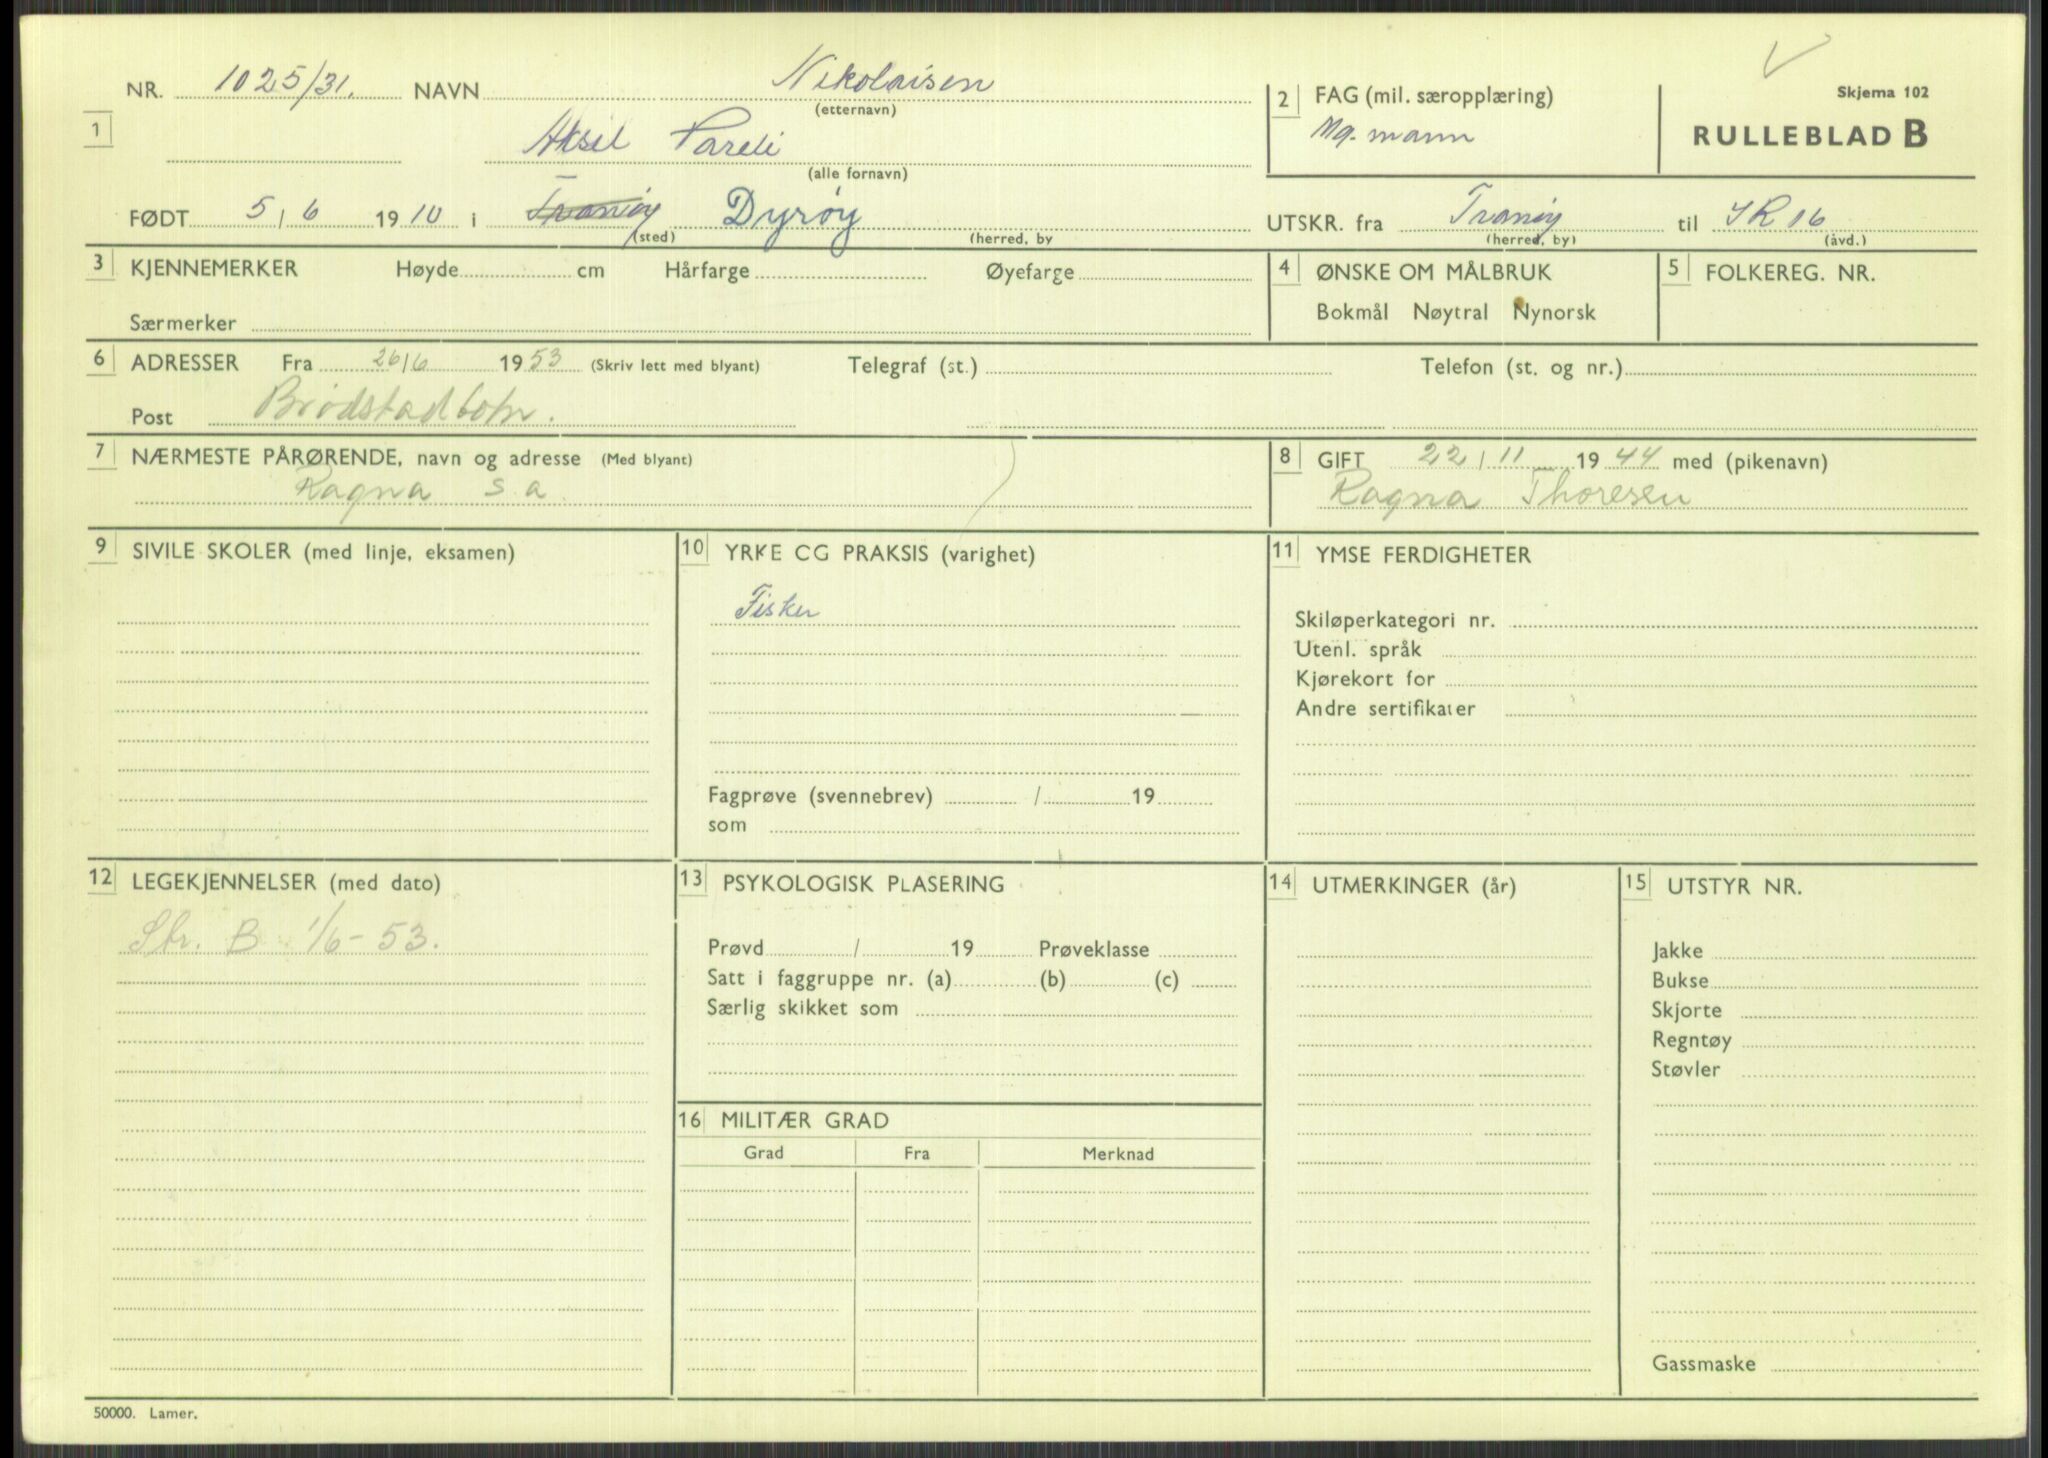 NR. 1025/31. NAVN Nikolaisen
(etternavn)
1
Aksel Pareli
(alle fornavn)
FØDT 5/6 1910 i Tranøy Dyrøy
(sted) (herred, by
2 FAG (mil. særopplæring)
Mg. mann
Skjema 102
RULLEBLAD B
UTSKR. fra Tranøy til IR 16
(herred, by) (avd.)
3 KJENNEMERKER Høyde cm Hårfarge Øyefarge
Særmerker
4 ØNSKE OM MÅLBRUK
Bokmål Nøytral Nynorsk
5 FOLKEREG. NR.
6 ADRESSER Fra 26/6 1953 (Skriv lett med blyant) Telegraf (st.) Telefon (st. og nr.)
Post Brødstadbotn.
7 NÆRMESTE PÅRØRENDE, navn og adresse (Med blyant)
Ragna s a
8 GIFT 22/11 1944 med (pikenavn)
Ragna Thoresen
9 SIVILE SKOLER (med linje, eksamen)
10 YRKE CG PRAKSIS (varighet)
Fisker
Fagprøve (svennebrev) / 19
som
11 YMSE FERDIGHETER
Skiløperkategori nr.
Utenl. språk
Kjørekort for
Andre sertifikater
12 LEGEKJENNELSER (med dato)
Str. B 1/6-53.
13 PSYKOLOGISK PLASERING
Prøvd / 19 Prøveklasse
Satt i faggruppe nr. (a) (b) (c)
Særlig skikket som
14 UTMERKINGER (år)
15 UTSTYR NR.
Jakke
Bukse
Skjorte
Regntøy
Støvler
Gassmaske
16 MILITÆR GRAD
Grad Fra Merknad
50000. Lamer.